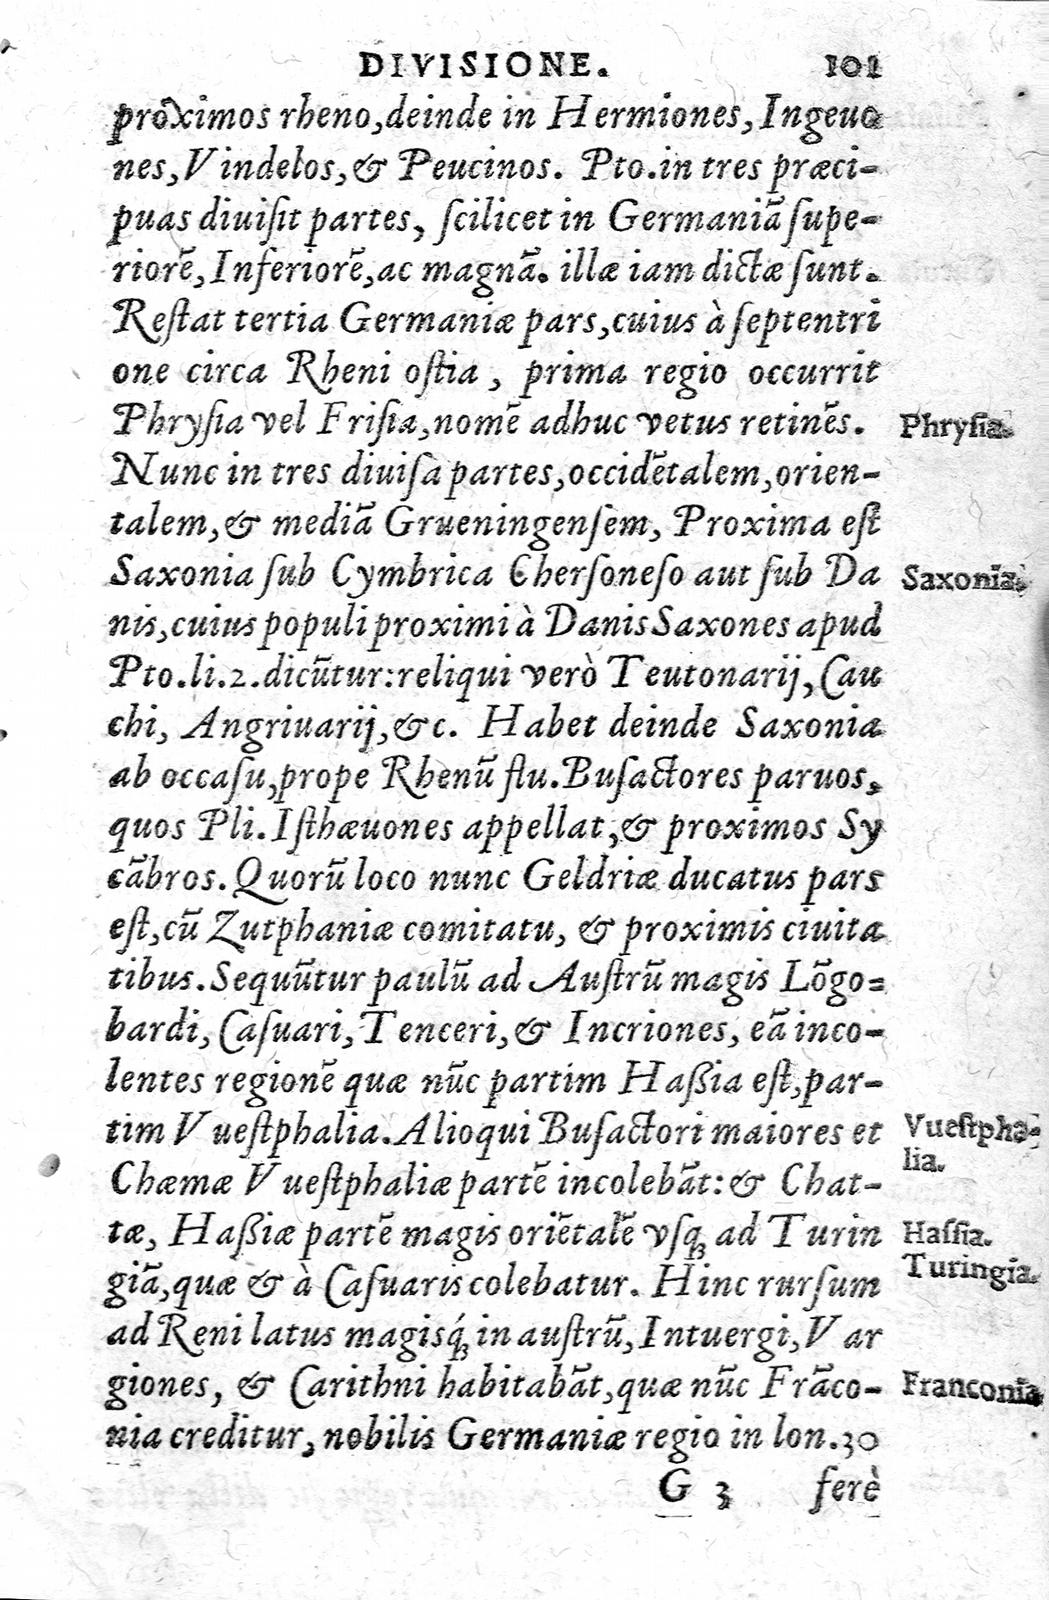 DIVISIONE. 101
proximos rheno,deinde in Hermiones,Ingeuo
nes,Vindelos,& Peucinos. Pto.in tres præci-
puas diuiſit partes, ſcilicet in Germaniā ſupe-
riorē,Inferiorē,ac magnā. illæ iam dictæ ſunt.
Reſtat tertia Germaniæ pars,cuius à ſeptentri
one circa Rheni oſtia , prima regio occurrit
Phryſia vel Friſia,nomē adhuc vetus retinēs.
Phryſia.
Nunc in tres diuiſa partes,occidētalem,orien-
talem,& mediā Grueningenſem, Proxima eſt
Saxonia ſub Cymbrica Cherſoneſo aut ſub Da
Saxonia.
nis,cuius populi proximi à Danis Saxones apud
Pto.li.2.dicūtur:reliqui verò Teutonarij,Cau
chi, Angriuarij,&c. Habet deinde Saxonia
ab occaſu,prope Rhenū flu.Buſactores paruos,
quos Pli.Iſthæuones appellat,& proximos Sy
cābros.Quorū loco nunc Geldriæ ducatus pars
eſt,cū Zutphaniæ comitatu, & proximis ciuita
tibus.Sequūtur paulū ad Auſtrū magis Lōgo-
bardi,Caſuari,Tenceri,& Incriones, eā inco-
lentes regionē quæ nūc partim Haßia eſt,par-
tim Vueſtphalia.Alioqui Buſactori maiores et
Vueſtpha-
lia.
Chæmæ Vueſtphaliæ partē incolebāt:& Chat-
tæ, Haßiæ partē magis oriētalē vſq; ad Turin
Haſſia.
giā,quæ & à Caſuaris colebatur. Hinc rurſum
Turingia.
ad Reni latus magisq́; in auſtrū,Intuergi,Var
giones, & Carithni habitabāt,quæ nūc Frāco-
Franconia
nia creditur, nobilis Germaniæ regio in lon.30
G 3 ferè